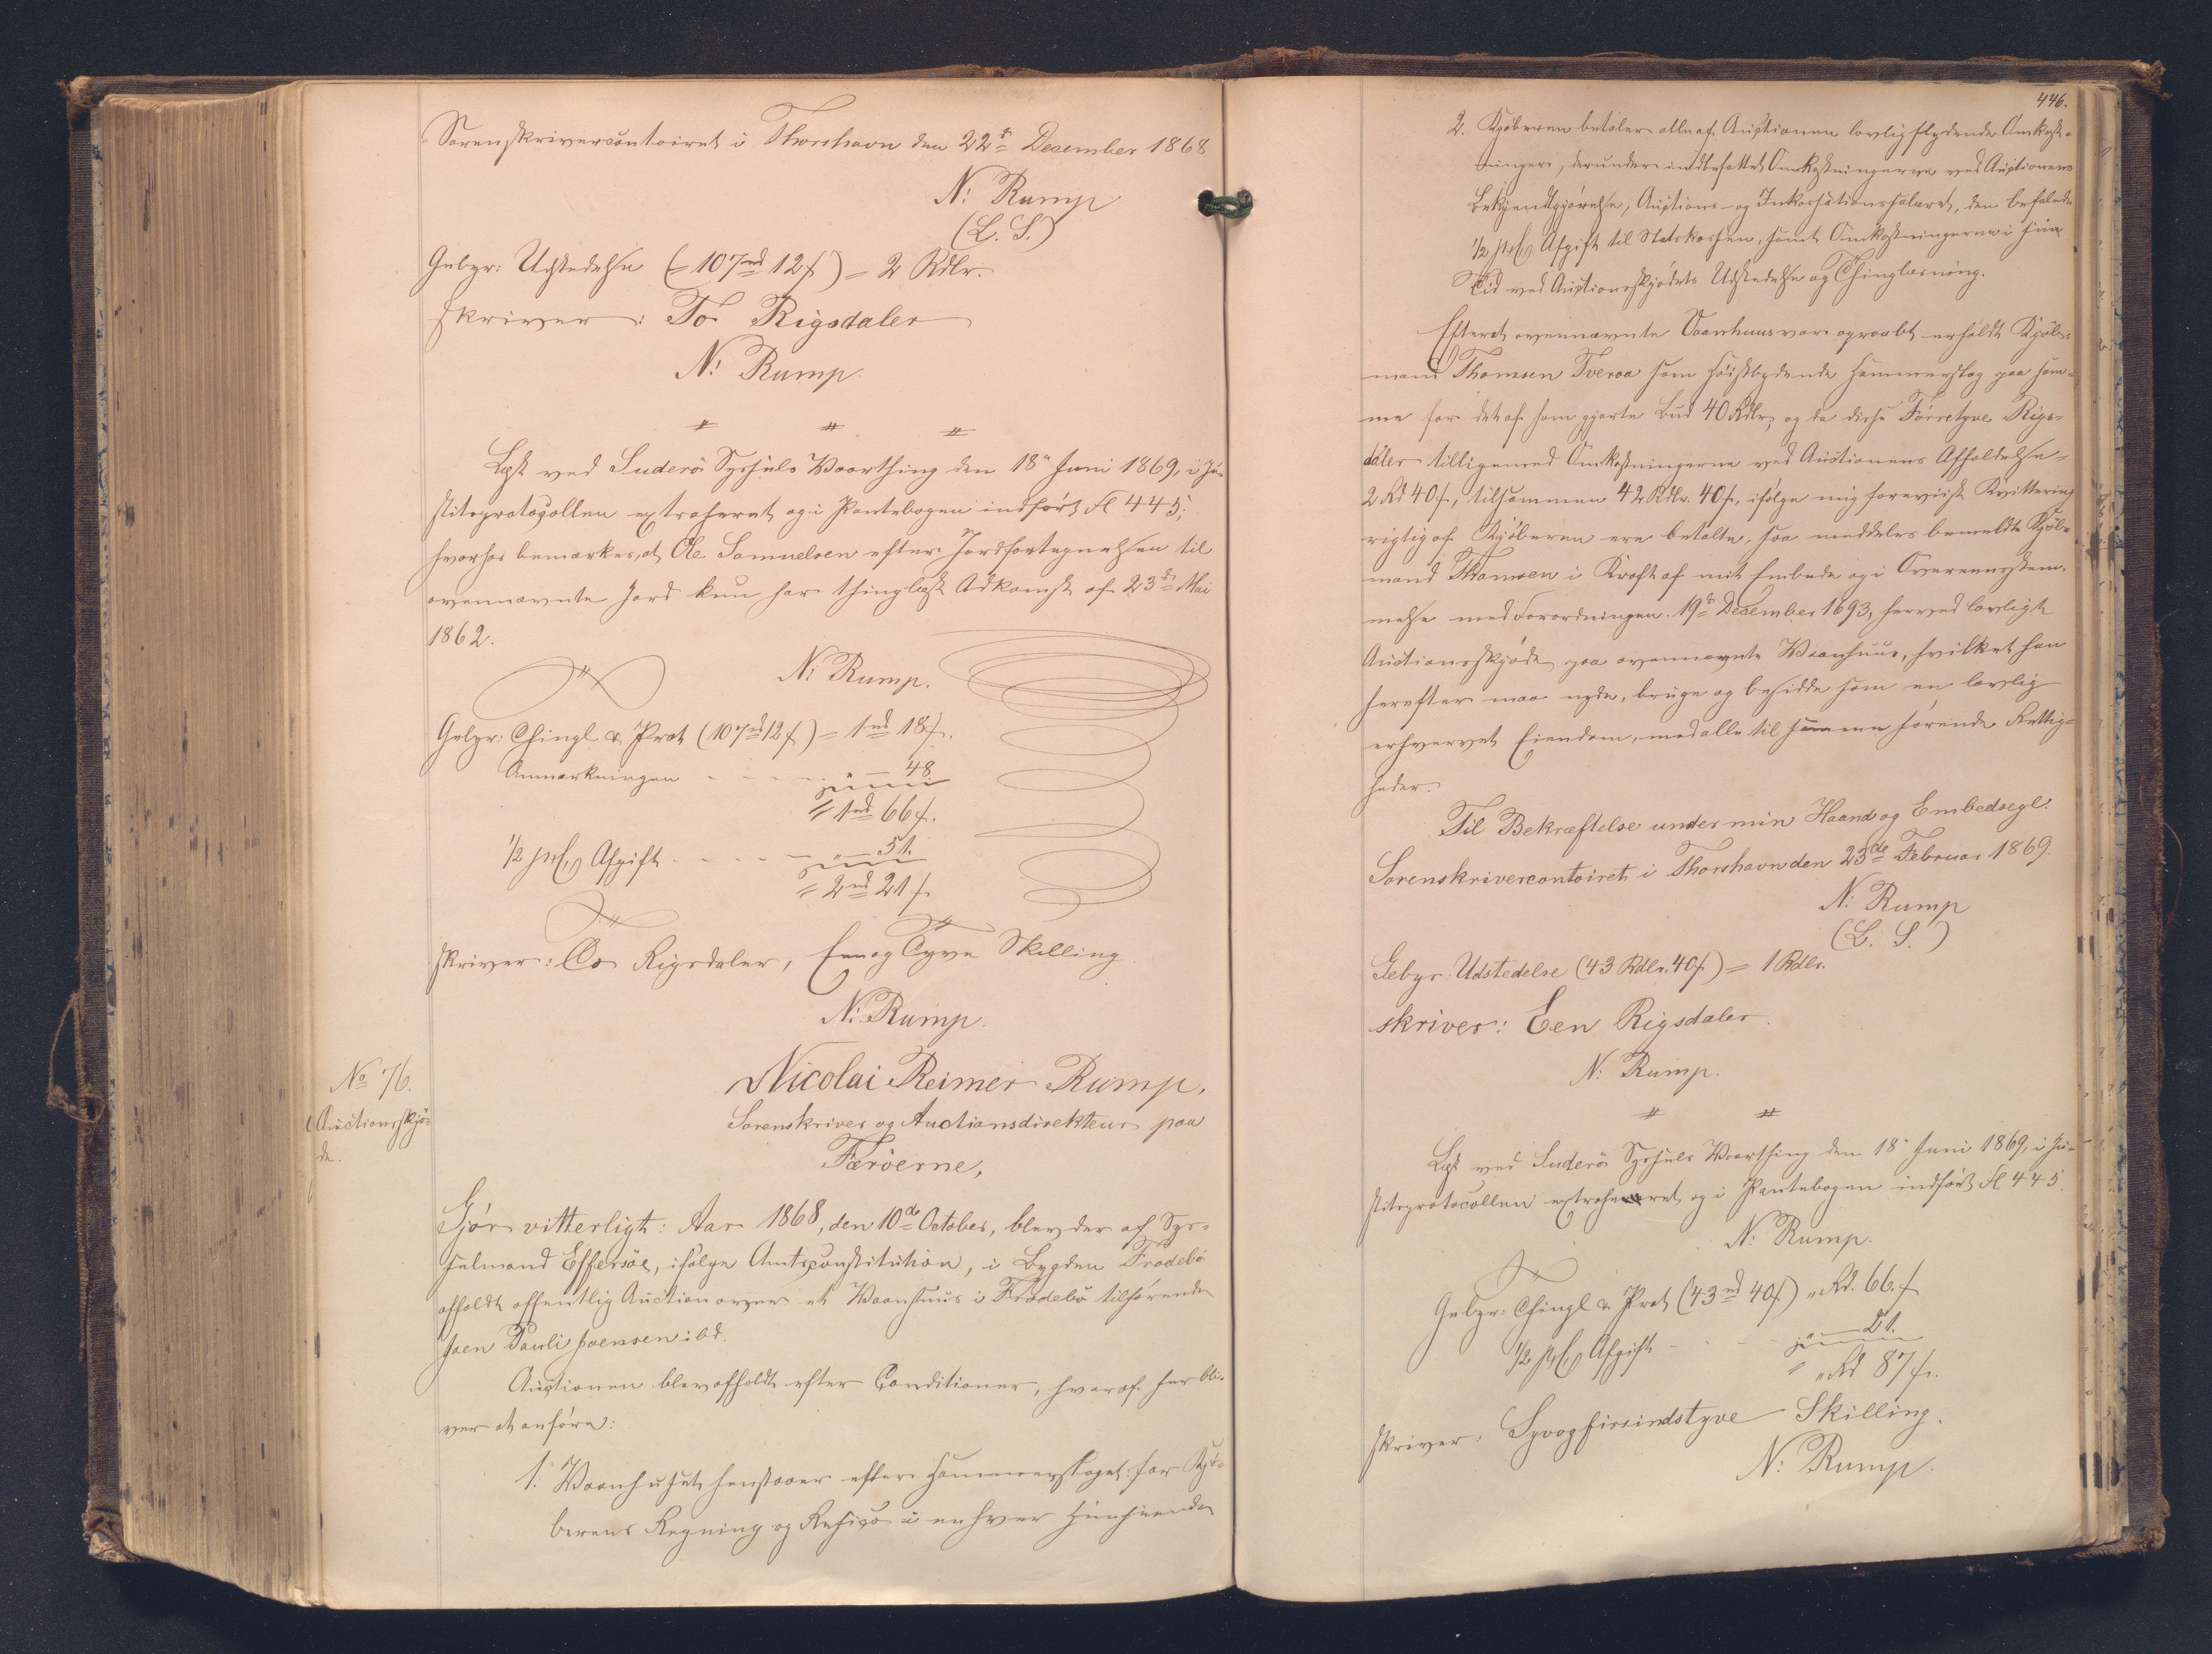 Sorenskrivercontoiret i Thorshavn den 22de December 1868.
N: Rump
(L. S.)
Gebyr: Udstedelse (= 107rd 12ſ) = 2 Rdlr.
skriver: To Rigsdaler
N: Rump.
Læst ved Suderö Syssels Vaarthing den 18de Juni 1869, i Ju-
stitsprotocollen extraheret og i Pantebogen indført Fol 445;
hvorhos bemærkes, at Ole Samuelsen efter Jordfortegnelsen til
ovennævnte Jord kun har thinglæst Adkomst af 23de Mai
1862.
N: Rump.
Gebyr: Thingl & Prot (107rd 12ſ) = 1rd 18ſ.
Anmærkningen - - - - " - 48
= 1rd 66ſ.
1/2 pCt Afgift - - - - " - 51.
= 2rd 21ſ
skriver: To Rigsdaler, Een og Tyve Skilling.
N: Rump.
No 76.
Auctionsskjö-
de.
Nicolai Reimer Rump,
Sorenskriver og Auctionsdirekteur paa
Færöerne,
Gjör vitterligt: Aar 1868, den 10de October, blev der af Sys-
selmand Effersöe, ifølge Amtsconstitution, i Bygden Frodebö
afholdt offentlig Auction over et Vaanhuus i Frodebö tilhörende
Joen Pauli Joensen ibd.
Auctionen blev afholdt efter Conditioner, hvoraf her bli-
ver at anføre:
1. Vaanhuset henstaaer efter Hammerslaget for Kjö-
berens Regning og Risico i enhver Henseende
446.
2. Kjöberen betaler alle af Auctionen lovlig flydende Omkost-
ninger, derunder indbefattet Omkostningerne ved Auctionens
Bekjendtgjörelse, Auctions- og Inkassationssalæret, den befalede
1/2 pCt Afgift til Statskassen, samt Omkostningerne i sin
Tid ved Auctionsskjödets Udstedelse og Thinglæsning.
Efterat ovennævnte Vaanhuus var opraabt erholdt Kjöb-
mand Thomsen Tveraa som höistbydende Hammerslag paa sam-
me for det af ham gjorte Bud 40 Rdlr, og da disse Förretyve Rigs-
daler tilligemed Omkostningerne ved Auctionens Afholdelse
2 Rd 40ſ, tilsammen 42 Rdlr. 40ſ, ifølge mig foreviist Kvittering
rigtig af Kjöberen ere betalte, saa meddeles bemeldte Kjöb-
mand Thomsen i Kraft af mit Embede og i Overeensstem-
melse med Forordningen 19de December 1693, herved lovligt
Auctionsskjöde paa ovennævnte Vaanhuus, hvilket han
herefter maa nyde, bruge og besidde som en lovlig
erhvervet Eiendom, med alle til samme hörende Rettig-
heder.
Til Bekræftelse under min Haand og Embedsegl.
Sorenskrivercontoiret i Thorshavn den 25de Februar 1869.
N: Rump
(L. S.)
Gebyr: Udstedelse (43 Rdlr. 40ſ) = 1 Rdlr.
skriver: Een Rigsdaler.
N: Rump.
Læst ved Suderö Syssels Vaarthing den 18de Juni 1869, i Ju-
stitsprotocollen extraheret og i Pantebogen indført Fol 445
N: Rump.
Gebyr: Thingl & Prot (43rd 40ſ) " Rd. 66.ſ
1/2 pCt Afgift - - - - " - 21.
= " Rd 87ſ.
skriver: Syvogfirsindstyve Skilling.
N: Rump.